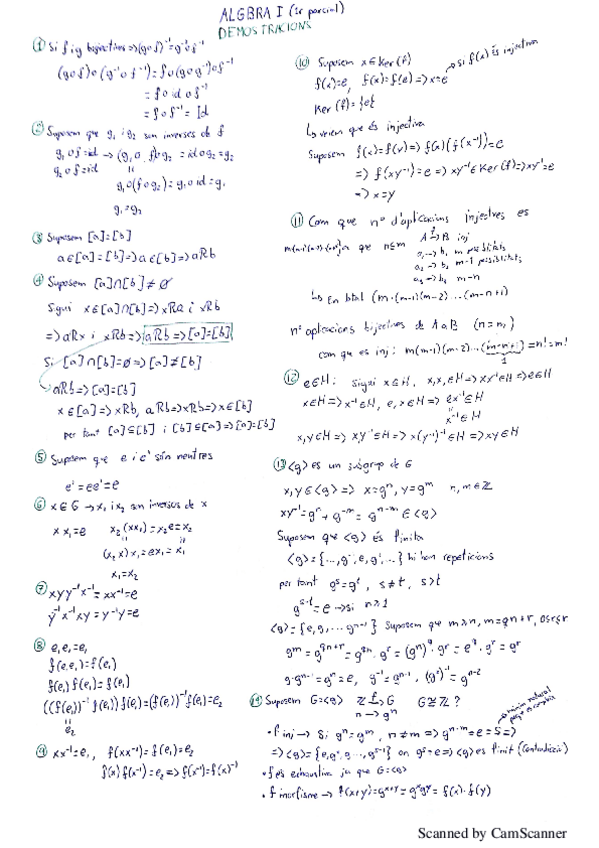 ALGBRA I (1r parcial)
DEMOSTRACIONS
① Si f i g bijectives => (g∘f)⁻¹ = g⁻¹∘f⁻¹
(g∘f)∘(g⁻¹∘f⁻¹) = f∘(g∘g⁻¹)∘f⁻¹
= f∘id∘f⁻¹
= f∘f⁻¹ = Id
② Suposem que g₁ i g₂ són inverses de f
g₁∘f = id → (g₁∘f)∘g₂ = id∘g₂ = g₂
g₂∘f = id
g₁∘(f∘g₂) = g₁∘id = g₁
g₁ = g₂
③ Suposem [a] = [b]
a∈[a] = [b] => a∈[b] => aRb
④ Suposem [a]∩[b] ≠ ∅
Sigui x∈[a]∩[b] => xRa i xRb
=> aRx i xRb => aRb => [a] = [b]
Si [a]∩[b] = ∅ => [a] ≠ [b]
aRb => [a] = [b]
x∈[a] => xRb, aRb => xRb => x∈[b]
per tant [a]⊆[b] i [b]⊆[a] => [a] = [b]
⑤ Suposem que e i e' són neutres
e' = ee' = e
⑥ x∈G → x₁ i x₂ són inversos de x
xx₁ = e x₂(xx₁) = x₂e = x₂
(x₂x)x₁ = ex₁ = x₁
x₁ = x₂
⑦ xyy⁻¹x⁻¹ = xx⁻¹ = e
y⁻¹x⁻¹xy = y⁻¹y = e
⑧ e₁e₁ = e₁
f(e₁e₁) = f(e₁)
f(e₁)f(e₁) = f(e₁)
((f(e₁))⁻¹f(e₁))f(e₁) = (f(e₁))⁻¹f(e₁) = e₂
e₂
⑨ xx⁻¹ = e₁, f(xx⁻¹) = f(e₁) = e₂
f(x)f(x⁻¹) = e₂ => f(x⁻¹) = f(x)⁻¹
⑩ Suposem x∈Ker(f) si f(x) és injectiva
f(x) = e, f(x) = f(e) => x = e
Ker(f) = {e}
veiem que és injectiva
Suposem f(x) = f(y) => f(x)(f(x⁻¹)) = e
=> f(xy⁻¹) = e => xy⁻¹∈Ker(f) => xy⁻¹ = e
=> x = y
⑪ Com que nº d'aplicacions injectives es
ja que n≤m A→B inj
a₁→b₁ m possibilitats
a₂→b₂ m-1 possibilitats
b₃ m-n
En total (m·(m-1)(m-2)...(m-n+1)
nº aplicacions bijectives de A a B (n=m)
com que es inj: m(m-1)(m-2)...(m-n+1) = n! = m!
1
⑫ e∈H: Sigui x∈H, x,x∈H => xx⁻¹∈H => e∈H
x∈H => x⁻¹∈H, e,x∈H => ex⁻¹∈H
x⁻¹∈H
x,y∈H => xy⁻¹∈H => x(y⁻¹)⁻¹∈H => xy∈H
⑬ <g> es un subgrup de G
x,y∈<g> => x = gⁿ, y = gᵐ n,m∈Z
xy⁻¹ = gⁿ + g⁻ᵐ = gⁿ⁻ᵐ∈<g>
Suposem que <g> és finita
<g> = {...,g⁻¹,e,g¹,...} hi han repeticions
per tant gˢ = gᵗ, s≠t, s>t
gˢ⁻ᵗ = e → si n≥1
<g> = {e,g,...gⁿ⁻¹} Suposem que m≥n, m = qn+r, 0≤r≤r
gᵐ = gqn+r = gqn·gr = (gⁿ)q·gr = eq·gr = gr
g·gⁿ⁻¹ = gⁿ = e, g⁻¹ = gⁿ⁻¹, (g²)⁻¹ = gⁿ⁻²
⑭ Suposem G = <g> Z→G G≅Z?
n→gⁿ
• f inj → Si gⁿ = gᵐ, n≠m => gⁿ⁻ᵐ = e = s =>
=> <g> = {e,g,g²,...,gˢ⁻¹} on gˢ = e => <g> es finit (contradicció)
• f es exhaustiva ja que G = <g>
• f morfisme → f(x+y) = gˣ⁺ʸ = gˣgʸ = f(x)·f(y)
Scanned by CamScanner